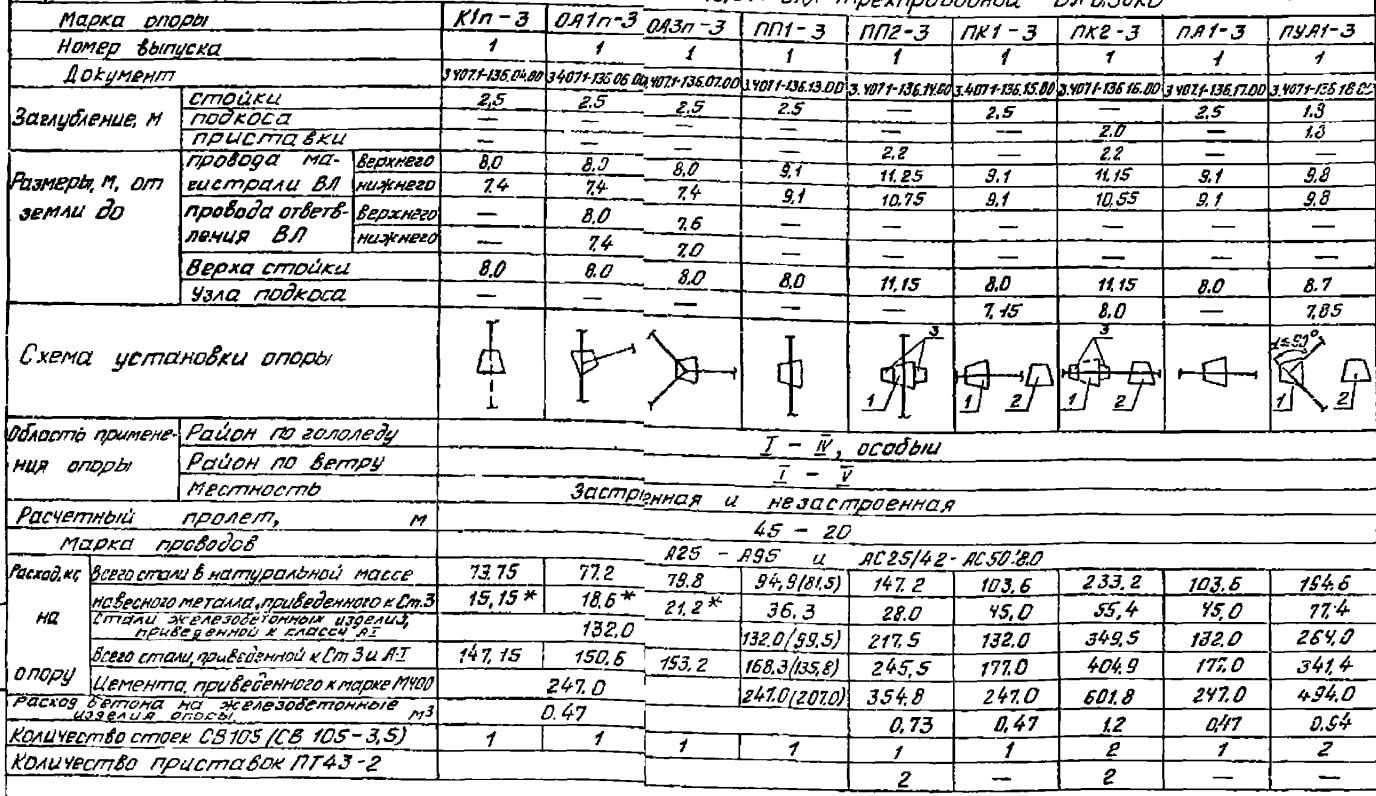 трехпроводной ВЛ 0.38кВ
Марка опоры К1п-3 ОА1п-3 ОА3п-3 ПП1-3 ПП2-3 ПК1-3 ПК2-3 ПА1-3 ПУА1-3
Номер выпуска 1 1 1 1 1 1 1 1 1
Документ 3.407.1-136.04.00 3.407.1-136.06.00 3.407.1-136.07.00 3.407.1-136.13.00 3.407.1-136.14.00 3.407.1-136.15.00 3.407.1-136.16.00 3.407.1-136.17.00 3.407.1-136.18.00
Заглубление, м
стойки 2,5 2,5 2,5 2,5 — 2,5 — 2,5 1.3
подкоса — — — — — — 2.0 — 1.3
приставки — — — — 2.2 — 2.2 — —
Размеры, м, от земли до
провода магистрали ВЛ
верхнего 8,0 8,0 8,0 9,1 11,25 9.1 11,15 9.1 9,8
нижнего 7.4 7.4 7.4 9,1 10,75 9.1 10,55 9.1 9.8
провода ответвления ВЛ
верхнего — 8,0 7,6 — — — — — —
нижнего — 7.4 7.0 — — — — — —
Верха стойки 8,0 8,0 8,0 8,0 11,15 8.0 11,15 8,0 8.7
Узла подкоса — — — — — 7,15 8,0 — 7,85
Схема установки опоры
3 3 α≤90°
1 1 2 1 2 1 2
Область применения опоры
Район по гололеду I – IV, особый
Район по ветру I – V
Местность Застроенная и незастроенная
Расчетный пролет, м 45 – 20
Марка проводов А25 – А95 и АС25/4.2 - АС50/8.0
Расход, кг на опору
Всего стали в натуральной массе 73.75 77.2 79.8 94,9(81,5) 147.2 103.6 233.2 103.6 194.6
навесного металла, приведенного к Ст.3 15,15* 18,6* 21.2* 36.3 28.0 45,0 55,4 45,0 77.4
Стали железобетонных изделий, приведенной к классу АI 132,0 132.0/(99,5) 217,5 132.0 349,5 132.0 264,0
Всего стали, приведенной к Ст 3 и А-I 147,15 150,6 153.2 168,3(135,8) 245,5 177.0 404.9 177.0 341,4
Цемента, приведенного к марке М400 247.0 247.0(207.0) 354.8 247.0 601.8 247.0 494.0
Расход бетона на железобетонные изделия опоры, м³ 0.47 0.73 0,47 1.2 0,47 0.94
Количество стоек СВ105 (СВ 105-3,5) 1 1 1 1 1 1 2 1 2
Количество приставок ПТ43-2 2 — 2 — —